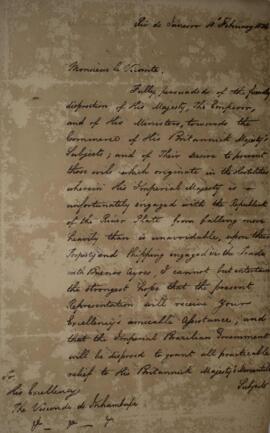 Rio de Janeiro 11 February 1826
Monsieur le Vicomte,
Fully persuaded of the friendly
disposition of His Majesty, The Emperor,
and of His Ministers, towards the
Commerce of His Britannick Majesty's
Subjects; and of Their desire to prevent
those evils which originate in the Hostilities
wherein His Imperial Majesty is
unfortunately engaged with the Republick
of the River Plate from falling more
heavily than is unavoidable, upon the
Property and Shipping engaged in the Trade
with Buenos Ayres, I cannot but entertain
the strongest hope that the present
Representation will receive Your
Excellency's amicable Assistance; and
that the Imperial Brazilian Government
will be disposed to grant all practicable
relief to His Britannick Majesty's Mercantile
Subjects
To
His Excellency
The Viscount de Inhambupe